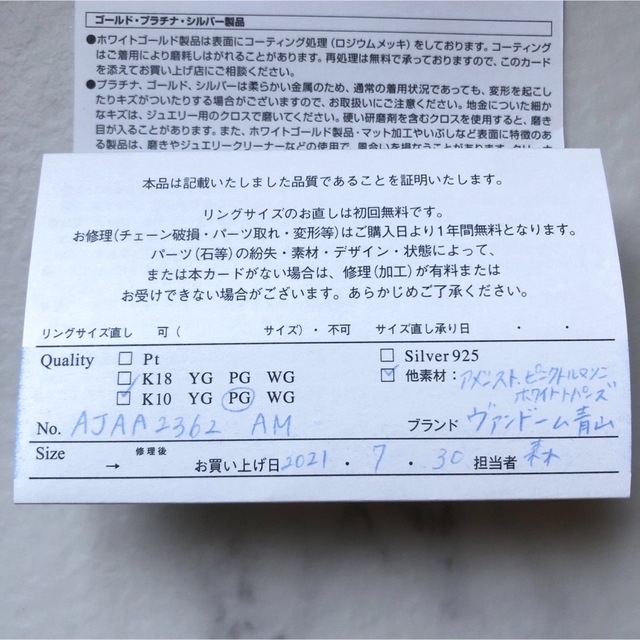 ゴールド・プラチナ・シルバー製品
●ホワイトゴールド製品は表面にコーティング処理(ロジウムメッキ)をしております。コーティング
はご着用により磨耗しはがれることがあります。再処理は無料で承っておりますので、このカード
を添えてお買い上げ店にご相談ください。
●プラチナ、ゴールド、シルバーは柔らかい金属のため、通常の着用状況であっても、変形を起こし
たりキズがついたりする場合がございますので、お取扱いにご注意ください。地金についた細か
なキズは、ジュエリー用のクロスで磨いてください。硬い研磨剤を含むクロスを使用すると、磨き
目が入ることがあります。また、ホワイトゴールド製品・マット加工やいぶしなど表面に特徴のあ
る製品は、磨きやジュエリークリーナーなどの使用で、風合いを損なうことがあります。
本品は記載いたしました品質であることを証明いたします。
リングサイズのお直しは初回無料です。
お修理(チェーン破損・パーツ取れ・変形等)はご購入日より1年間無料となります。
パーツ(石等)の紛失・素材・デザイン・状態によって、
または本カードがない場合は、修理(加工)が有料または
お受けできない場合がございます。あらかじめご了承ください。
リングサイズ直し 可( サイズ)・不可 サイズ直し承り日 ・ ・
Quality □ Pt □ Silver925
□ K18 YG PG WG ☑ 他素材:アメジスト、ピンクトルマリン
☑ K10 YG PG WG ホワイトトパーズ
No. AJAA2362 AM ブランド ヴァンドーム青山
Size → 修理後 お買い上げ日 2021・7・30 担当者 森